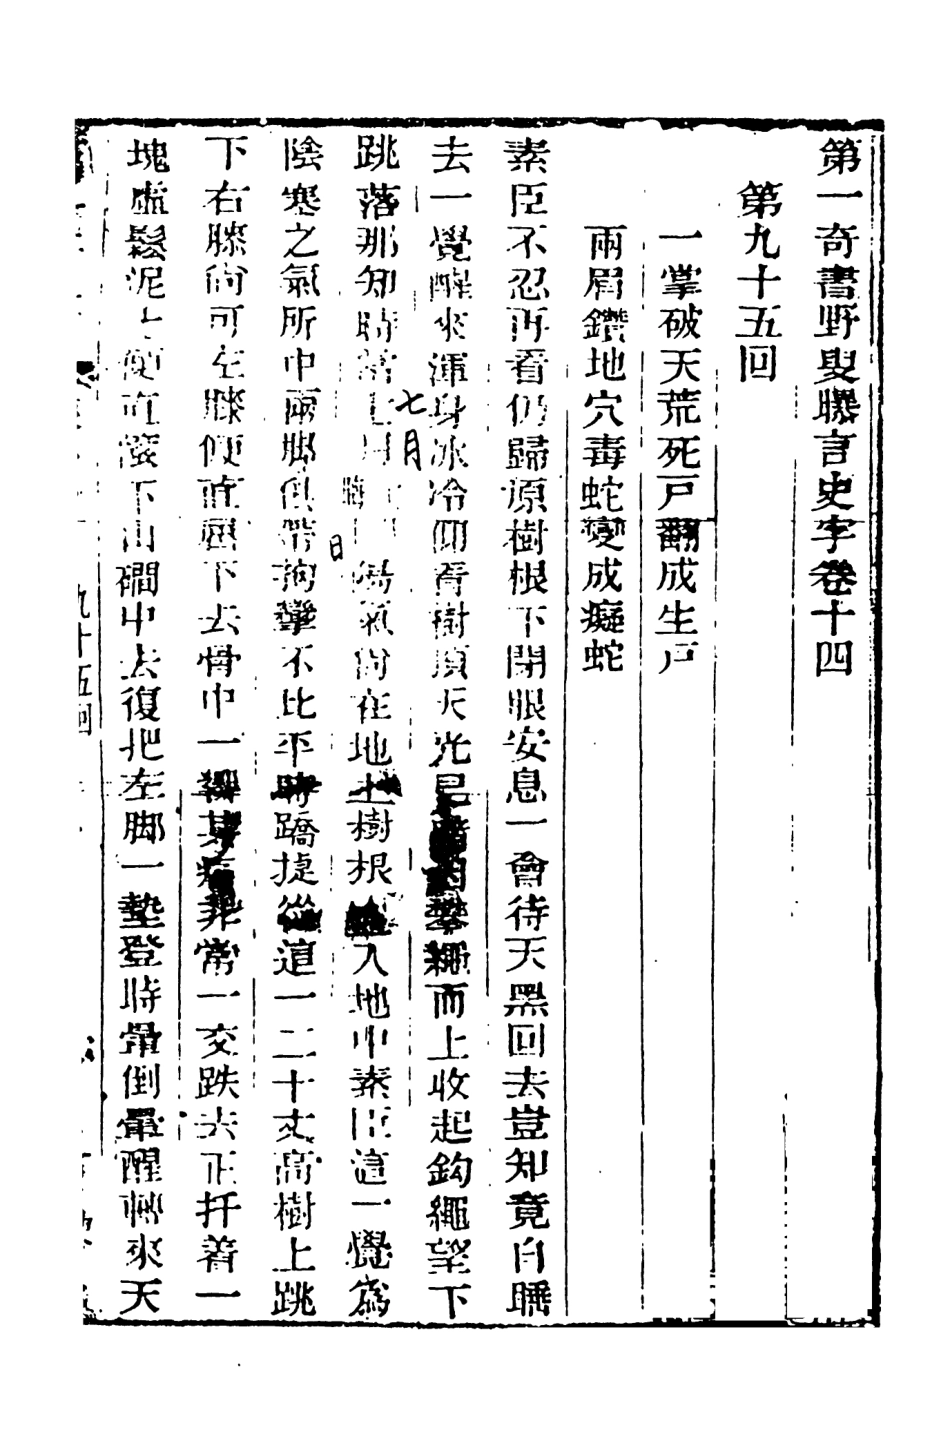 第一奇書野叟曝言史字卷十四
第九十五回
一掌破天荒死戸翻成生戸
兩眉鑽地穴毒蛇變成癡蛇
素臣不忍再看仍歸原樹根下閉眼安息一會待天黑回去豈知竟自睡
去一覺醒來渾身冰冷仰看樹頂天光已攀繩而上收起鈎繩望下
跳落那知時當七月陽氣尚在地土樹根入地中素臣這一覺為
陰寒之氣所中兩脚俱帶拘攣不比平時蹻捷從這一二十丈高樹上跳
下右膝尚可左膝便直矬下去骨中一痛非常一交跌去正扦着一
塊虛鬆泥土便直滾下山磵中去復把左脚一墊登時暈倒暈醒轉來天
七月
日
九十五回